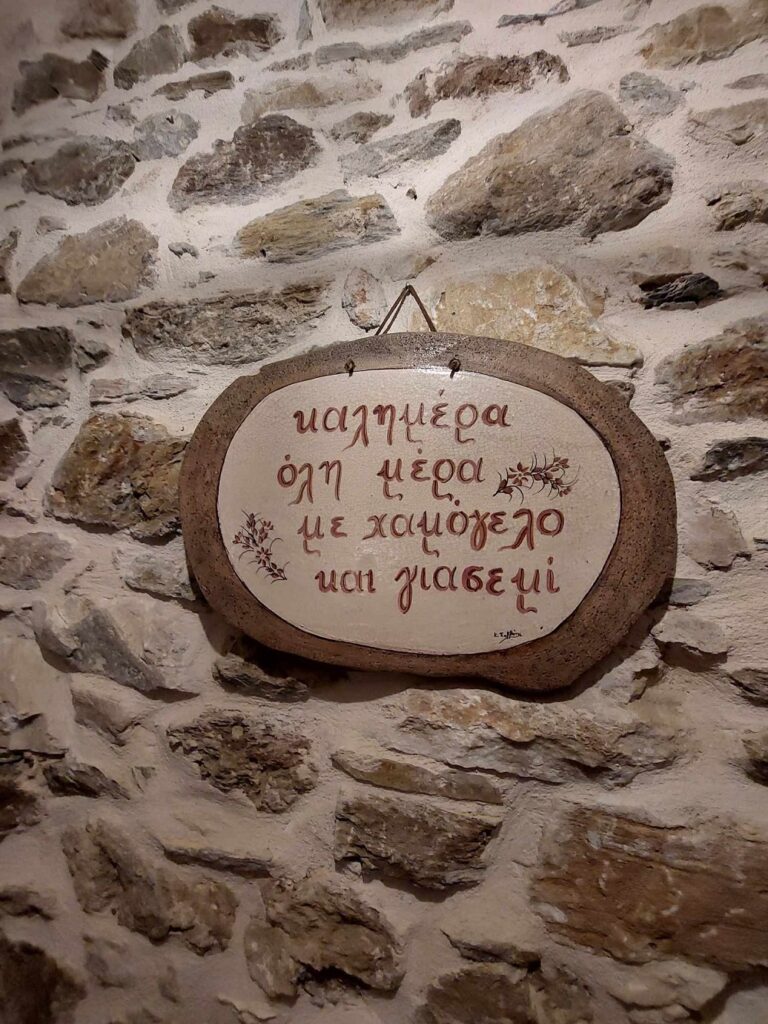 καλημέρα
όλη μέρα
με χαμόγελο
και γιασεμί